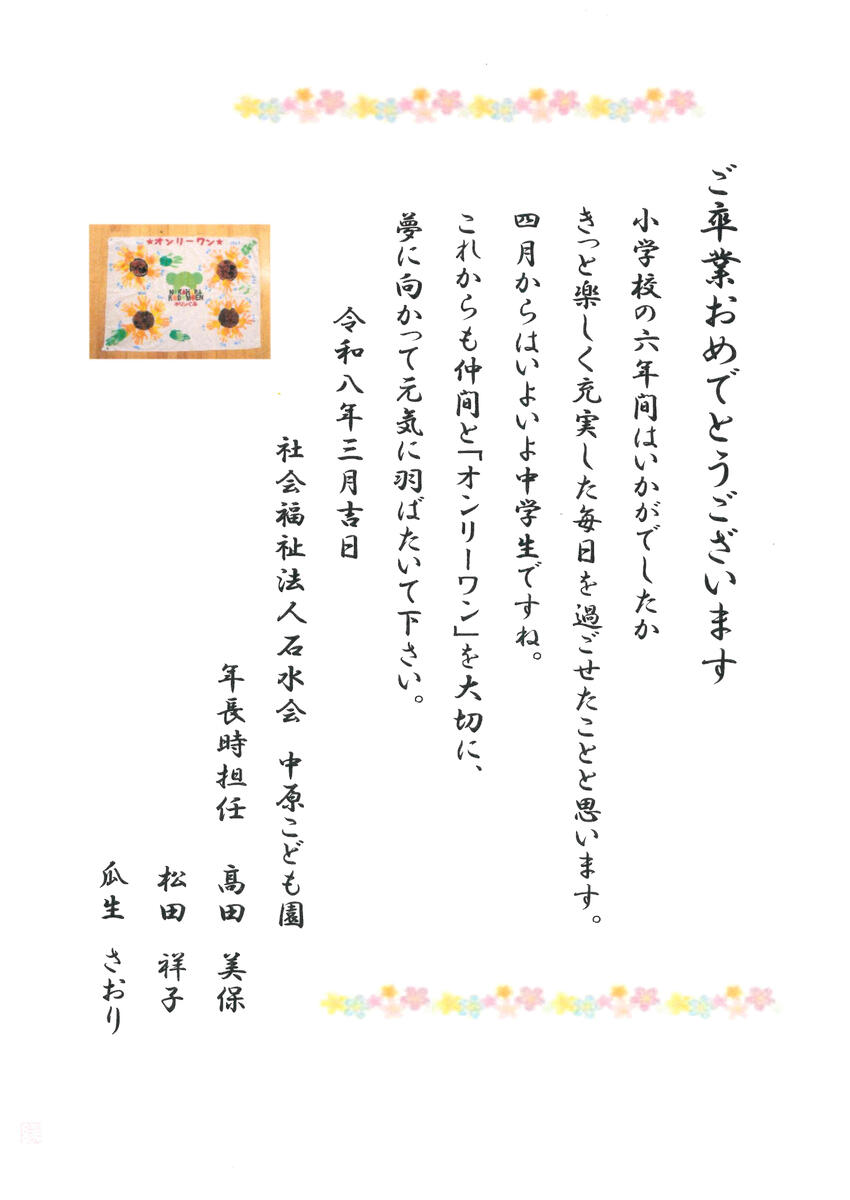 ご卒業おめでとうございます
小学校の六年間はいかがでしたか
きっと楽しく充実した毎日を過ごせたことと思います。
四月からはいよいよ中学生ですね。
これからも仲間と「オンリーワン」を大切に、
夢に向かって元気に羽ばたいて下さい。
令和八年三月吉日
社会福祉法人石水会 中原こども園
年長時担任 髙田 美保
松田 祥子
瓜生 さおり
★オンリーワン★
NAKAHARA
KODOMOEN